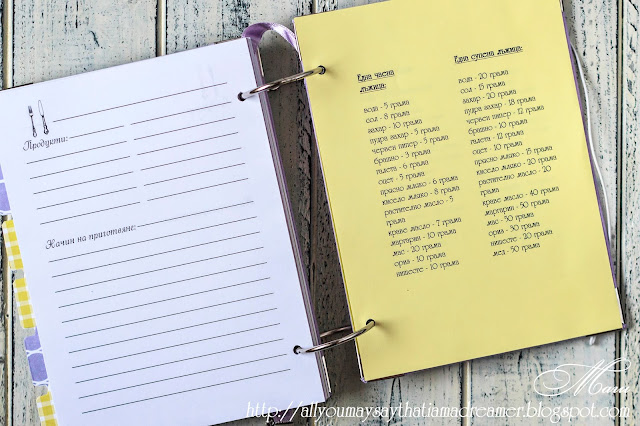 Продукти:
Начин на приготвяне:
Една чаена
лъжица:
вода - 5 грама
сол - 8 грама
захар - 10 грама
пудра захар - 5 грама
червен пипер - 5 грама
брашно - 3 грама
галета - 6 грама
оцет - 5 грама
прясно мляко - 6 грама
кисело мляко - 8 грама
растително масло - 5
грама
краве масло - 7 грама
маргарин - 10 грама
мас - 20 грама
ориз - 10 грама
нишесте - 10 грама
Една супена лъжица:
вода - 20 грама
сол - 15 грама
захар - 20 грама
пудра захар - 18 грама
червен пипер - 12 грама
брашно - 10 грама
галета - 12 грама
оцет - 10 грама
прясно мляко - 15 грама
кисело мляко - 20 грама
растително масло - 20
грама
краве масло - 40 грама
маргарин - 50 грама
мас - 50 грама
ориз - 30 грама
нишесте - 20 грама
мед - 50 грама
http://allyoumaysaythatiamadreamer.blogspot.com